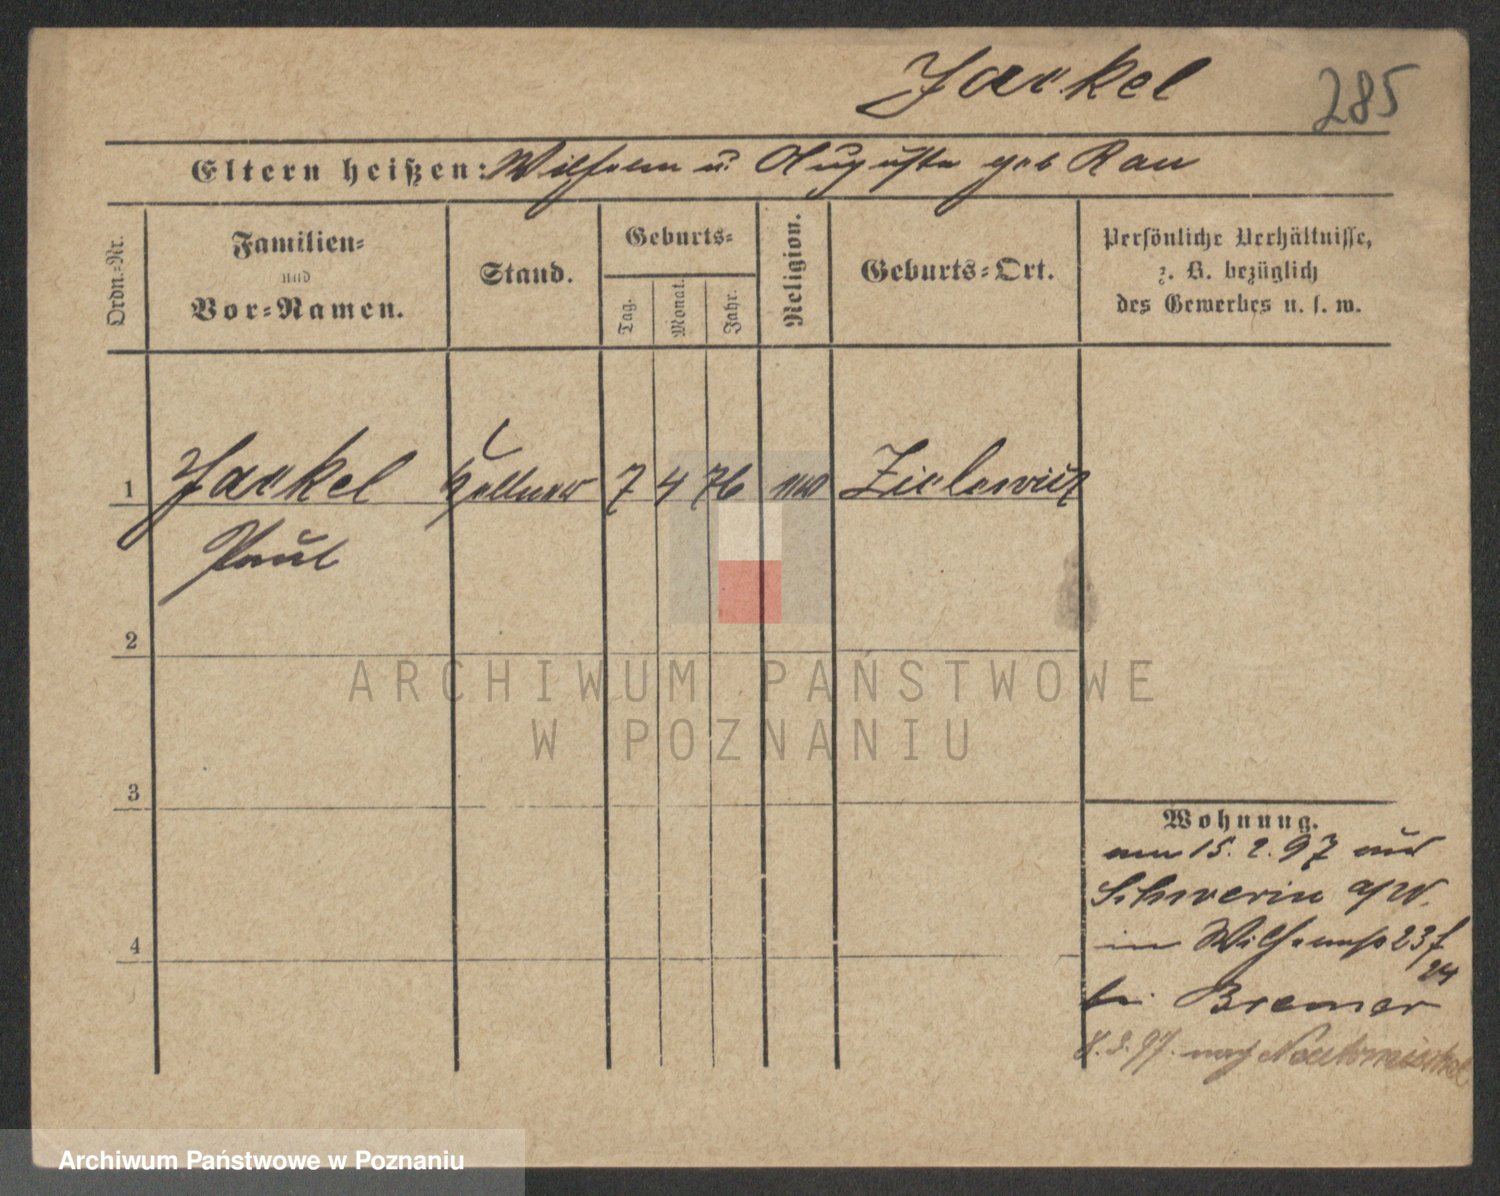 Jaekel
285
Eltern heißen: Wilhelm u. Auguste geb Rau
Ordn.=Nr.
Familien=
und
Vor=Namen.
Stand.
Geburts=
Tag.
Monat.
Jahr.
Religion.
Geburts=Ort.
Persönliche Verhältnisse,
z. B. bezüglich
des Gewerbes u. s. w.
1 Jaekel Kellner 7 4 76
Paul
2
3
4
Wohnung.
am 15. 2. 97 aus
Schwerin a/W.
in Wilhelmstr 23 f
24
bei Bremer
8. 3. 97. nach Neutomischel
ARCHIWUM PAŃSTWOWE
W POZNANIU
Archiwum Państwowe w Poznaniu